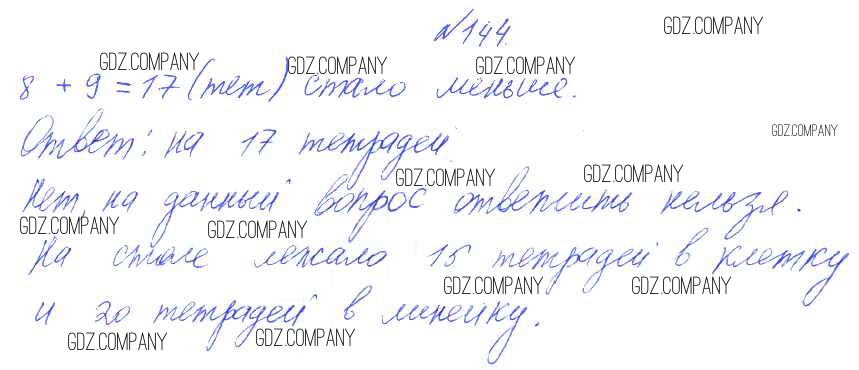 №144.
8 + 9 = 17 (тет) стало меньше.
Ответ: на 17 тетрадей
Нет, на данный вопрос ответить нельзя.
На столе лежало 15 тетрадей в клетку
и 20 тетрадей в линейку.
GDZ.COMPANY
GDZ.COMPANY
GDZ.COMPANY
GDZ.COMPANY
GDZ.COMPANY
GDZ.COMPANY
GDZ.COMPANY
GDZ.COMPANY
GDZ.COMPANY
GDZ.COMPANY
GDZ.COMPANY
GDZ.COMPANY
GDZ.COMPANY